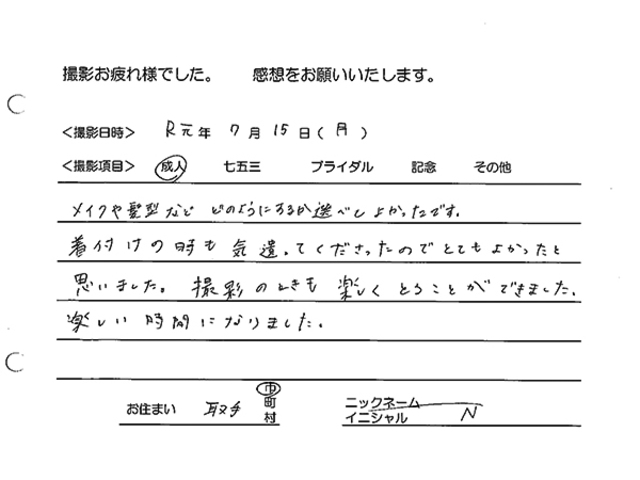 撮影お疲れ様でした。 感想をお願いいたします。
<撮影日時> R元年 7月 15日(月)
<撮影項目> 成人 七五三 ブライダル 記念 その他
メイクや髪型など どのようにするか選べしよかったです。
着付けの時も 気遣ってくださったのでとてもよかったと
思いました。撮影のときも 楽しくとることができました。
楽しい時間になりました。
お住まい 取手 市町村
ニックネーム
イニシャル N